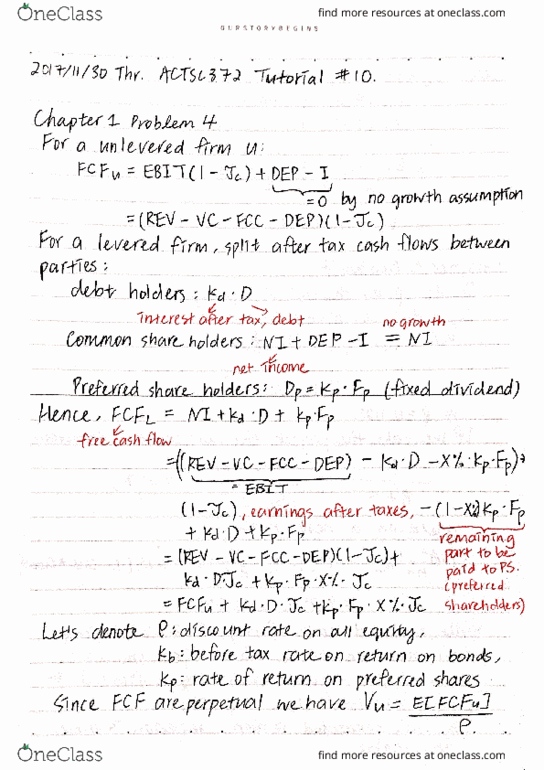 OneClass
find more resources at oneclass.com
OURSTORYBEGINS
2017/11/30 Thr. ACTSC372 Tutorial #10.
Chapter 1 Problem 4
For a unlevered firm U:
FCFu = EBIT(1 - Jc) + DEP - I
= 0 by no growth assumption
= (REV - VC - FCC - DEP)(1 - Jc)
For a levered firm, split after tax cash flows between
parties:
debt holders: Kd · D
interest after tax, debt
no growth
Common share holders: NI + DEP - I = NI
net income
Preferred share holders: Dp = Kp · Fp (fixed dividend)
Hence, FCFL = NI + Kd · D + Kp · Fp
free cash flow
= ((REV - VC - FCC - DEP) - Kd · D - X% · Kp · Fp) ·
= EBIT
(1 - Jc), earnings after taxes, - (1 - X%) Kp · Fp
+ Kd · D + Kp · Fp
remaining
part to be
paid to PS.
(preferred
shareholders)
= (REV - VC - FCC - DEP)(1 - Jc) +
Kd · D · Jc + Kp · Fp · X% · Jc
= FCFu + Kd · D · Jc + Kp · Fp · X% · Jc
Let's denote ρ: discount rate on all equity,
Kb: before tax rate on return on bonds,
Kp: rate of return on preferred shares
Since FCF are perpetual we have Vu = E[FCFu]
ρ.
OneClass
find more resources at oneclass.com